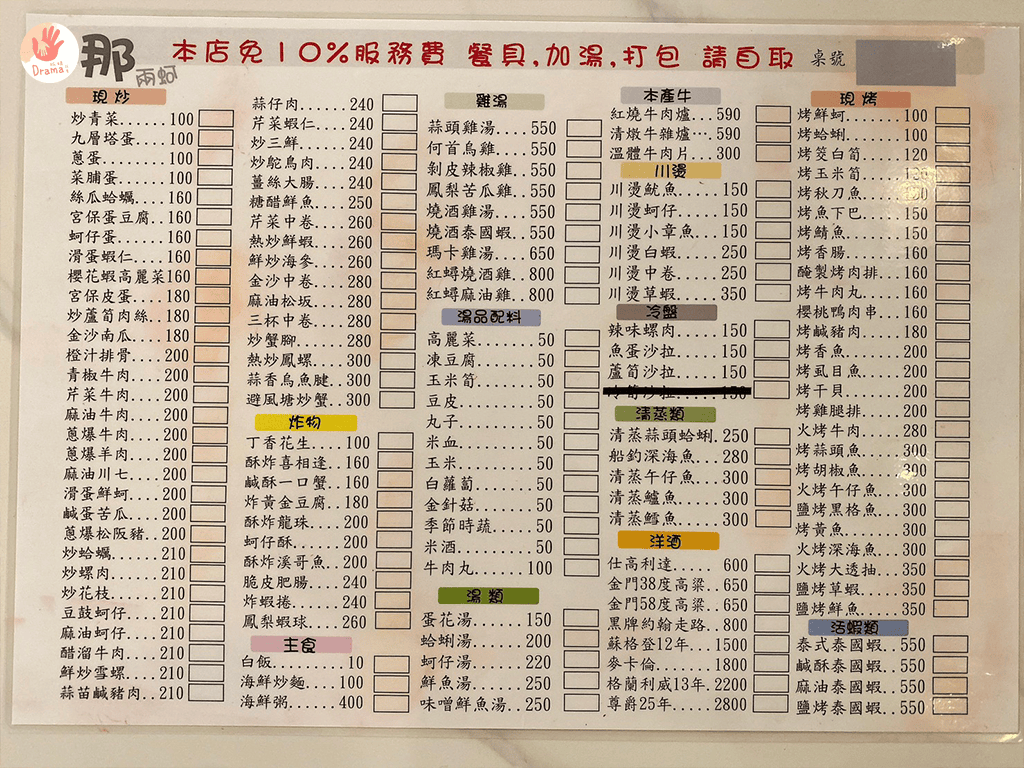 Drama
那
兩蚵
本店免10%服務費 餐具,加湯,打包 請自取 桌號
現炒
炒青菜.......100
九層塔蛋....100
蔥蛋.........160
菜脯蛋......160
絲瓜蛤蠣....160
宮保蛋豆腐..160
蚵仔蛋......160
滑蛋蝦仁....160
櫻花蝦高麗菜160
宮保皮蛋....180
炒蘆筍肉絲..180
金沙南瓜....180
橙汁排骨....200
青椒牛肉....200
芹菜牛肉....200
麻油牛肉....200
蔥爆牛肉....200
蔥爆羊肉....200
麻油川七....200
滑蛋鮮蚵....200
鹹蛋苦瓜....200
蔥爆松阪豬..200
炒蛤蠣......210
炒螺肉......210
炒花枝......210
豆鼓蚵仔....210
麻油蚵仔....210
醋溜牛肉....210
鮮炒雪螺....210
蒜苗鹹豬肉..210
蒜仔肉......240
芹菜蝦仁....240
炒三鮮......240
炒鴕鳥肉....240
薑絲大腸....240
糖醋鮮魚....250
芹菜中卷....260
熱炒鮮蝦....260
鮮炒海參....260
金沙中卷....280
麻油松坂....280
三杯中卷....280
炒蟹腳......280
熱炒鳳螺....300
蒜香烏魚腱..300
避風塘炒蟹..300
炸物
丁香花生....100
酥炸喜相逢..160
鹹酥一口蟹..160
炸黃金豆腐..180
酥炸龍珠....200
蚵仔酥......200
酥炸溪哥魚..200
脆皮肥腸....240
炸蝦捲......240
鳳梨蝦球....260
主食
白飯.........10
海鮮炒麵....100
海鮮粥......400
雞湯
蒜頭雞湯....550
何首烏雞....550
剝皮辣椒雞..550
鳳梨苦瓜雞..550
燒酒雞湯....550
燒酒泰國蝦..550
瑪卡雞湯....650
紅蟳燒酒雞..800
紅蟳麻油雞..800
湯品配料
高麗菜.......50
凍豆腐.......50
玉米筍.......50
豆皮.........50
丸子.........50
米血.........50
玉米.........50
白蘿蔔.......50
金針菇.......50
季節時蔬.....50
米酒.........50
牛肉丸......100
湯類
蛋花湯......150
蛤蜊湯......200
蚵仔湯......220
鮮魚湯......250
味噌鮮魚湯..250
本產牛
紅燒牛肉爐...590
清燉牛雜爐...590
溫體牛肉片...300
川燙
川燙魷魚.....150
川燙蚵仔.....150
川燙小章魚...150
川燙白蝦.....250
川燙中卷.....250
川燙草蝦.....350
冷盤
辣味螺肉.....150
魚蛋沙拉.....150
蘆筍沙拉.....150
清蒸類
清蒸蒜頭蛤蜊.250
船釣深海魚...280
清蒸午仔魚...300
清蒸鱸魚.....300
清蒸鱈魚.....300
洋酒
仕高利達.....600
金門38度高粱..650
金門58度高粱..650
黑牌約翰走路..800
蘇格登12年...1500
麥卡倫......1800
格蘭利威13年.2200
尊爵25年.....2800
現烤
烤鮮蚵......100
烤蛤蜊......100
烤筊白筍....120
烤玉米筍....120
烤秋刀魚....150
烤魚下巴....150
烤鯖魚......150
烤香腸......160
醃製烤肉排..160
烤牛肉丸....160
櫻桃鴨肉串..160
烤鹹豬肉....180
烤香魚......200
烤虱目魚....200
烤干貝......200
烤雞腿排....200
火烤牛肉....280
烤蒜頭魚....300
烤胡椒魚....300
火烤午仔魚..300
鹽烤黑格魚..300
烤黃魚......300
火烤深海魚..300
火烤大透抽..350
鹽烤草蝦....350
鹽烤鮮魚....350
活蝦類
泰式泰國蝦..550
鹹酥泰國蝦..550
麻油泰國蝦..550
鹽烤泰國蝦..550